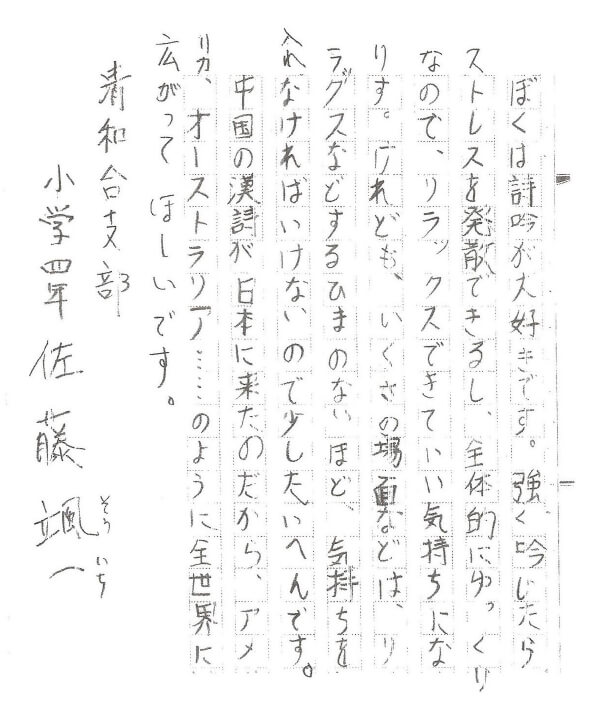 ぼくは詩吟が大好きです。強く吟じたら
ストレスを発散できるし、全体的にゆっくり
なので、リラックスできていい気持ちにな
りす。けれども、いくさの場面などは、リ
ラグスなどするひまのないほど、気持ちを
入れなければいけないので少したいへんです。
中国の漢詩が日本に来たのだから、アメ
リカ、オーストラリア……のように全世界に
広がってほしいです。
青和台支部
小学四年 佐藤颯一
そういち